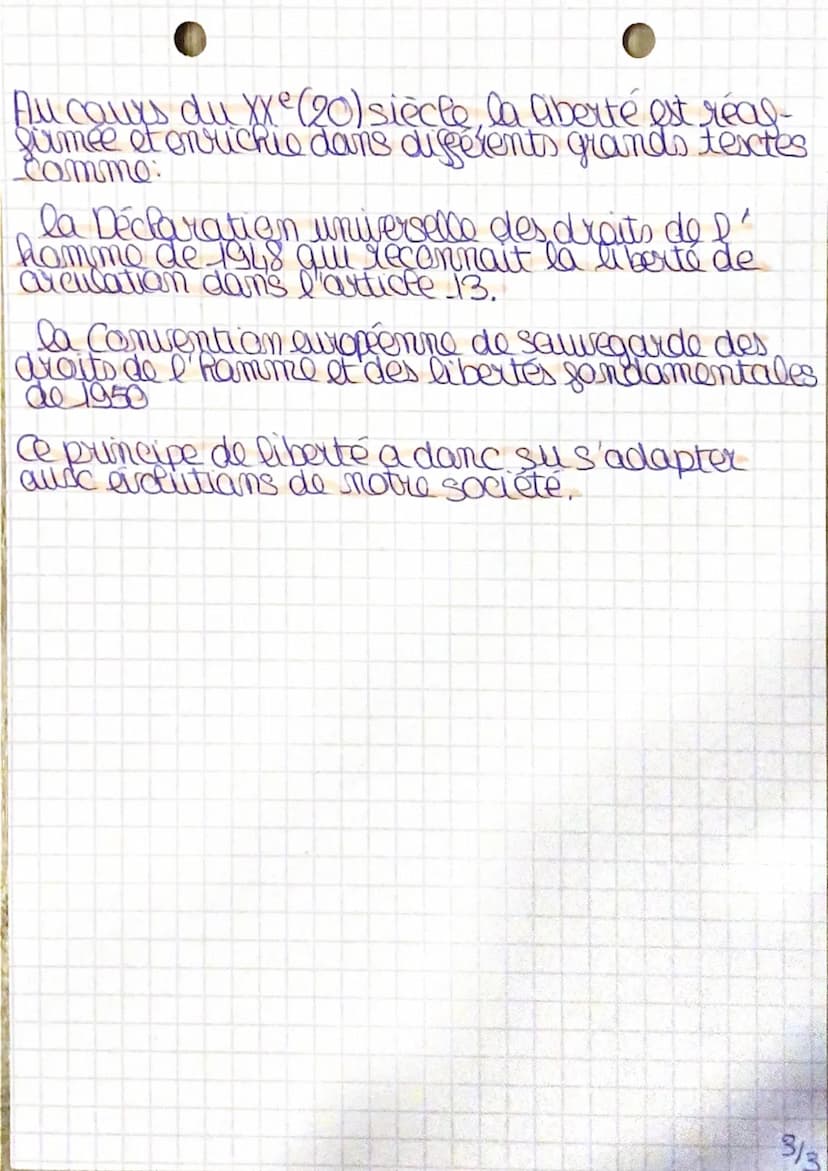 Au cours du XXe (20) siècle la liberté est réaf-
firmée et enrichie dans différents grands textes
comme:
la Déclaration universelle des droits de l'
homme de 1948 qui reconnait la liberté de
circulation dans l'article 13.
la Convention européenne de sauvegarde des
droits de l'homme et des libertés fondamentales
de 1950
Ce principe de liberté a donc su s'adapter
aux évolutions de notre société.
3/3